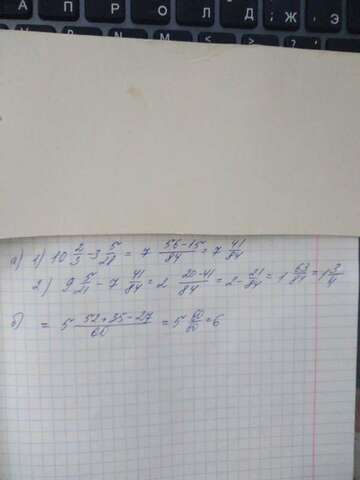 А П Р О Л Д Ж Э
а) 1) 10 2/3 - 3 5/28 = 7 56-15/84 = 7 41/84
2) 9 5/21 - 7 41/84 = 2 20-41/84 = 2 - 21/84 = 1 63/84 = 1 3/4
б) = 5 52+35-27/60 = 5 60/60 = 6